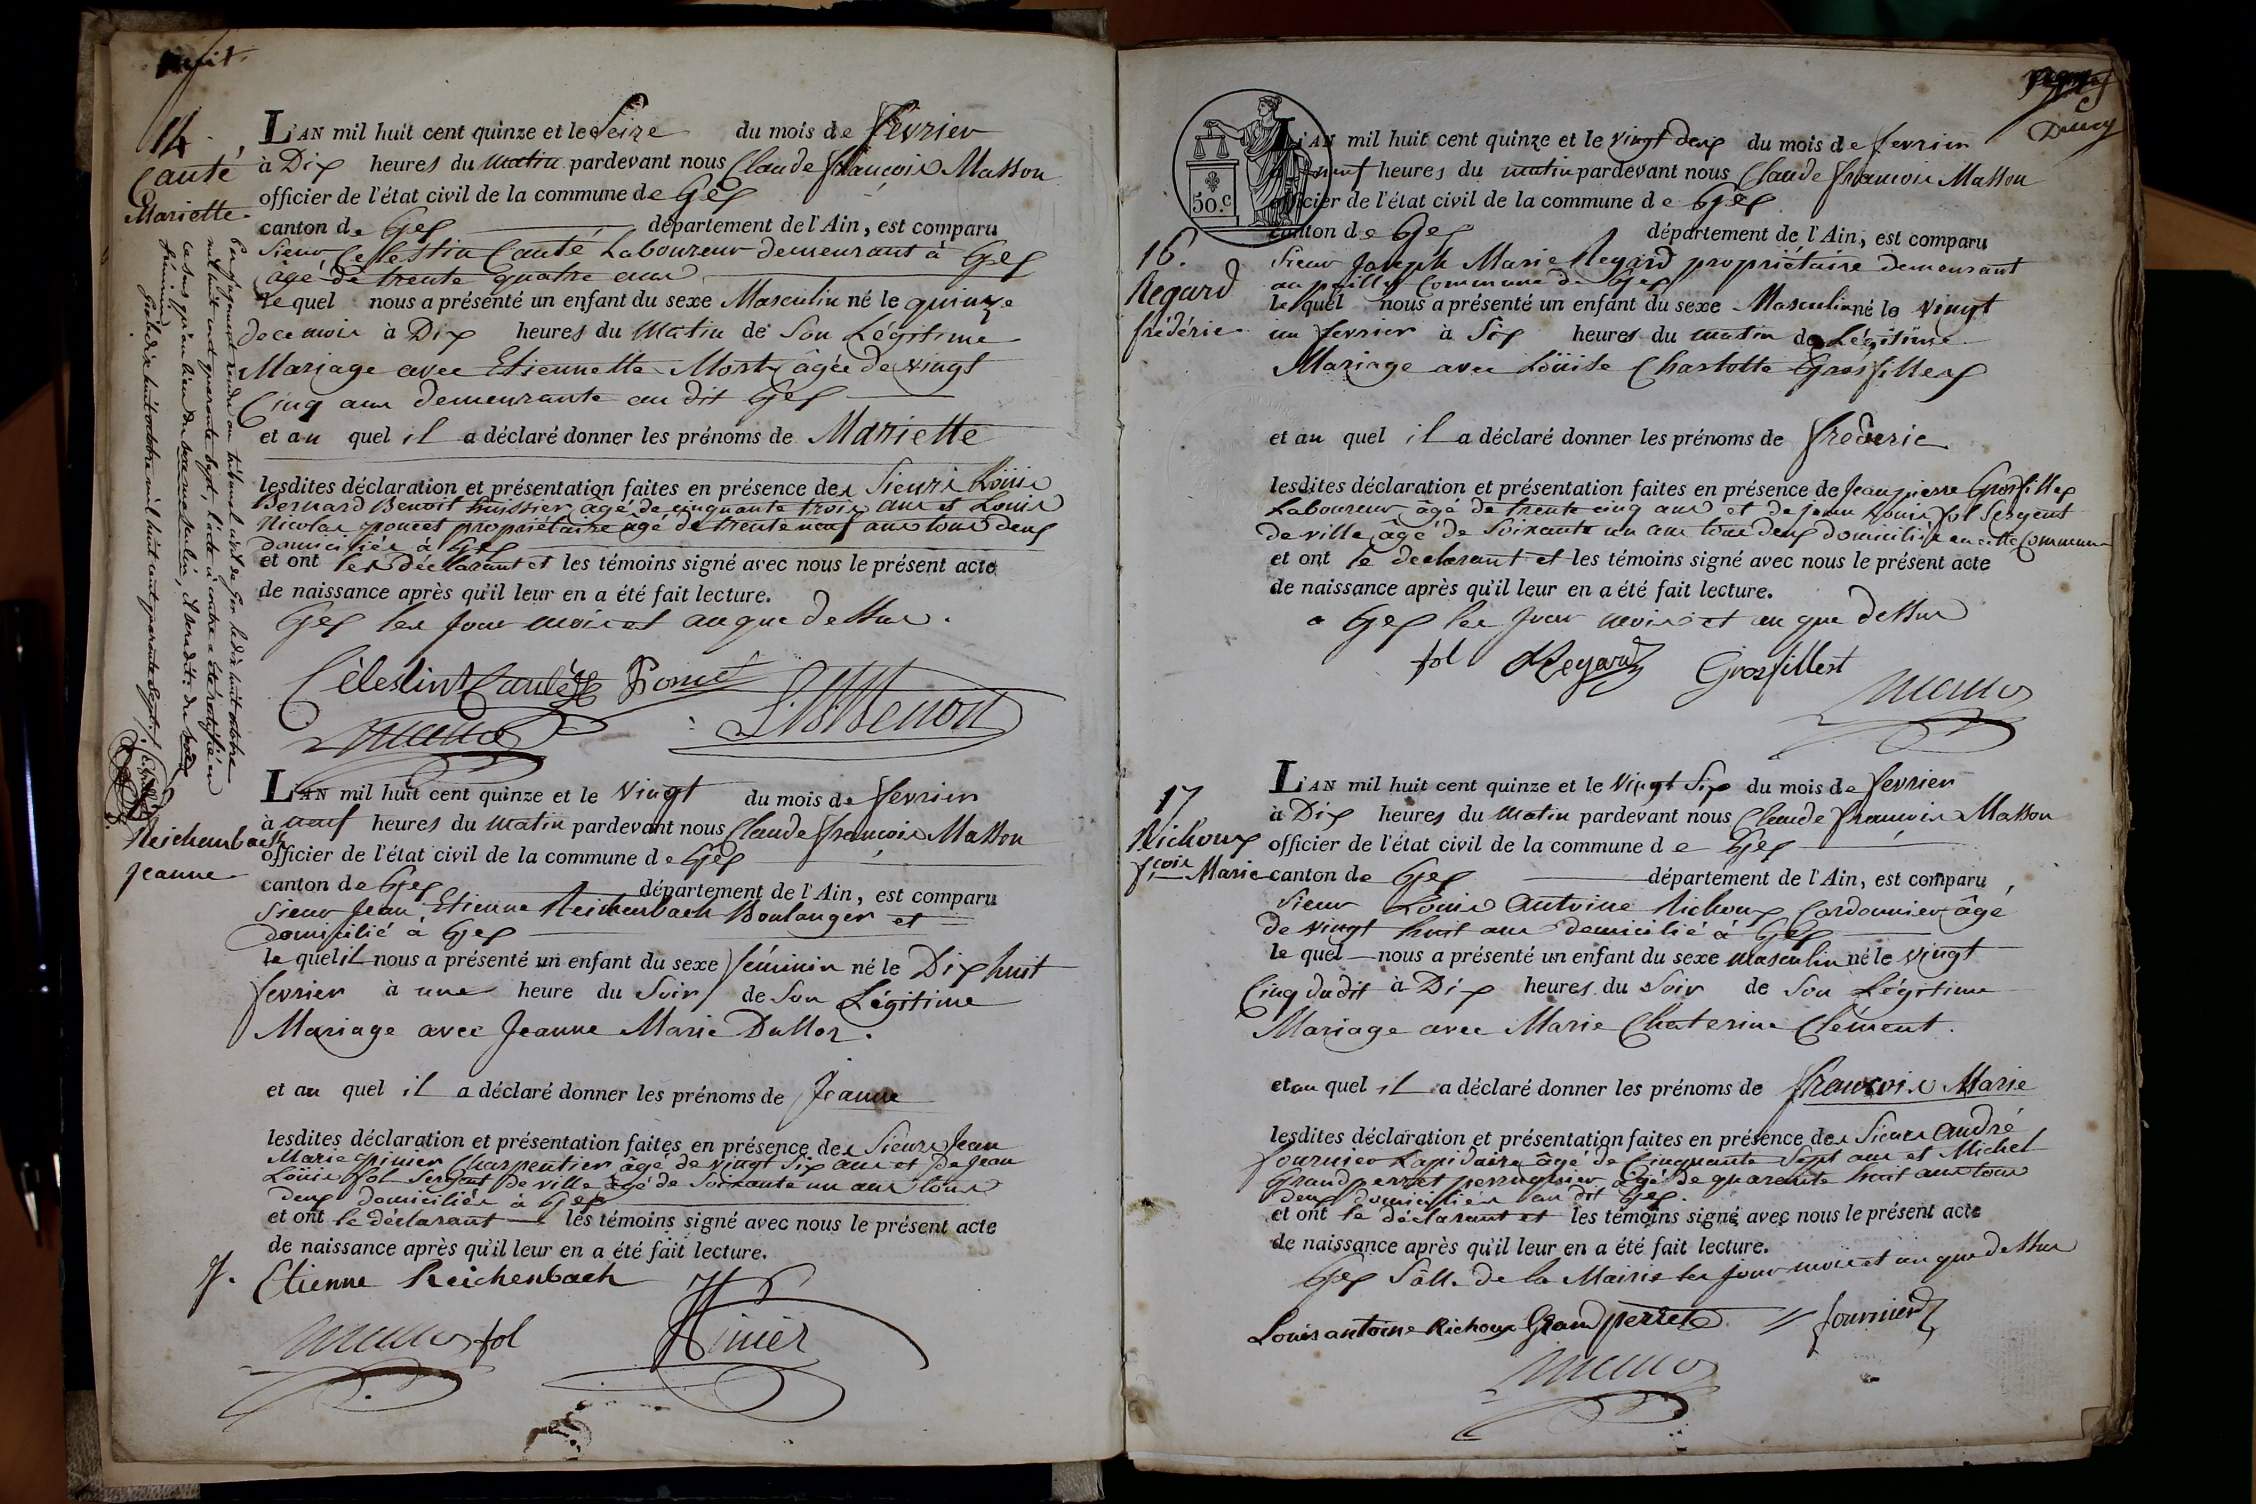 huit.
14.
Cauté
Mariette.
L'AN mil huit cent quinze et le Seize du mois de fevrier
à Dix heures du matin pardevant nous Claude françois Masson
officier de l'état civil de la commune de Gex
canton de Gex département de l'Ain, est comparu
Sieur Celestin Cauté Laboureur demeurant à Gex
âgé de trente quatre ans
le quel nous a présenté un enfant du sexe Masculin né le quinze
de ce mois à Dix heures du Matin de Son Légitime
Mariage avec Etiennette Morty âgée de vingt
Cinq ans demeurante au dit Gex
et au quel il a déclaré donner les prénoms de Mariette
lesdites déclaration et présentation faites en présence des Sieurs Louis
Bernard Benoit huissier âgé de cinquante trois ans et Louis
Nicolas poncet propriétaire âgé de trente neuf ans tous deux
domiciliés à Gex
et ont les déclarant et les témoins signé avec nous le présent acte
de naissance après qu'il leur en a été fait lecture.
Gex les jour mois et an que dessus.
Célestin Cauté Poncet
L.B. Benoit
Masson
Par jugement rendu au tribunal civil de Gex le dix huit octobre
mil huit cent quarante sept, l'acte ci contre a été rectifié en
ce sens qu'au lieu de sexe masculin, il sera dit du sexe
féminin
Gex le dix huit octobre mil huit cent quarante sept
Reichenbach
Jeanne
L'AN mil huit cent quinze et le Vingt du mois de fevrier
à neuf heures du Matin pardevant nous Claude françois Masson
officier de l'état civil de la commune de Gex
canton de Gex département de l'Ain, est comparu
Sieur Jean Etienne Reichenbach Boulanger et
domicilié à Gex
le quel il nous a présenté un enfant du sexe féminin né le Dix huit
fevrier à une heure du Soir de Son Légitime
Mariage avec Jeanne Marie Dalloz.
et au quel il a déclaré donner les prénoms de Jeanne
lesdites déclaration et présentation faites en présence des Sieurs Jean
Marie pinier Charpentier âgé de vingt Six ans et de Jean
Louis fol Sergent de ville âgé de Soixante un ans tous
deux domiciliés à Gex
et ont le déclarant les témoins signé avec nous le présent acte
de naissance après qu'il leur en a été fait lecture.
Etienne Reichenbach
Masson fol Pinier
50.c
16.
Regard
frédéric
L'AN mil huit cent quinze et le vingt deux du mois de fevrier
à neuf heures du matin pardevant nous Claude françois Masson
officier de l'état civil de la commune de Gex
canton de Gex département de l'Ain, est comparu
Sieur Joseph Marie Regard propriétaire demeurant
au pailly Commune de Gex
le quel nous a présenté un enfant du sexe Masculin né le vingt
un fevrier à Six heures du matin de Légitime
Mariage avec Loüise Charlotte Grosfillex
et au quel il a déclaré donner les prénoms de frederic
lesdites déclaration et présentation faites en présence de Jean pierre Grosfillex
Laboureur âgé de trente cinq ans et de jean Louis fol Sergent
de ville âgé de Soixante un ans tous deux domiciliés en cette Commune
et ont le declarant et les témoins signé avec nous le présent acte
de naissance après qu'il leur en a été fait lecture.
a Gex les jour mois et an que dessus
fol Regard Grosfillext
Masson
17
Richoux
fçois Marie
L'AN mil huit cent quinze et le Vingt Six du mois de fevrier
à Dix heures du matin pardevant nous Claude françois Masson
officier de l'état civil de la commune de Gex
canton de Gex département de l'Ain, est comparu
Sieur Louis Antoine Richoux Cordonnier âgé
de vingt huit ans domicilié à Gex
le quel nous a présenté un enfant du sexe masculin né le vingt
Cinq du dit à Dix heures du Soir de Son Légitime
Mariage avec Marie Chaterine Clément.
et au quel il a déclaré donner les prénoms de françois Marie
lesdites déclaration et présentation faites en présence des Sieurs andré
fournier Lapidaire âgé de Cinquante Sept ans et Michel
Grandperret perruquier âgé de quarante huit ans tous
deux domiciliés au dit Gex.
et ont le déclarant et les témoins signé avec nous le présent acte
de naissance après qu'il leur en a été fait lecture.
Gex Salle de la Mairie les jour mois et an que dessus
Louis antoine Richoux Grand perret fournier
Masson